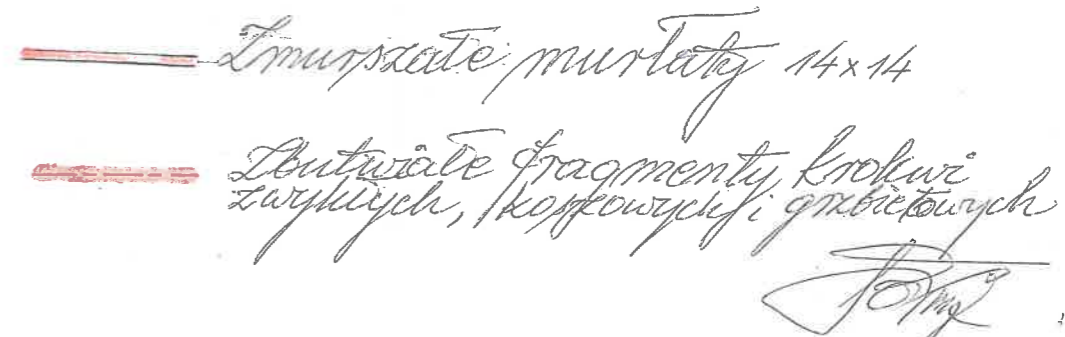 Zmurszałe murłaty 14x14
Zbutwiałe fragmenty krokwi
zwykłych, koszowych i grzbietowych